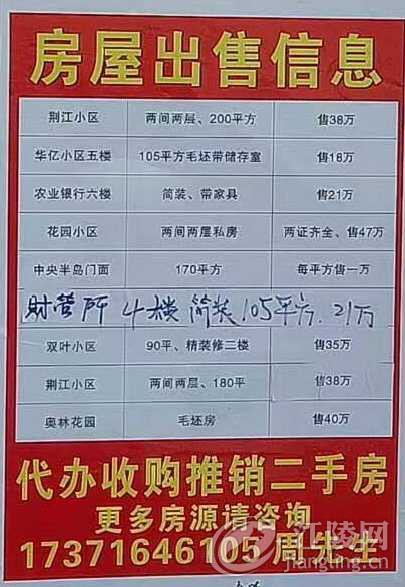 房屋出售信息
荆江小区 两间两层、200平方 售38万
华亿小区五楼 105平方毛坯带储存室 售18万
农业银行六楼 简装、带家具 售21万
花园小区 两间两层私房 两证齐全、售47万
中央半岛门面 170平方 每平方售一万
财管所 4楼 简装 105平方. 21万
双叶小区 90平、精装修二楼 售35万
荆江小区 两间两层、180平 售38万
奥林花园 毛坯房 售40万
代办收购推销二手房
更多房源请咨询
17371646105 周先生
江陵网
jiangling.cn